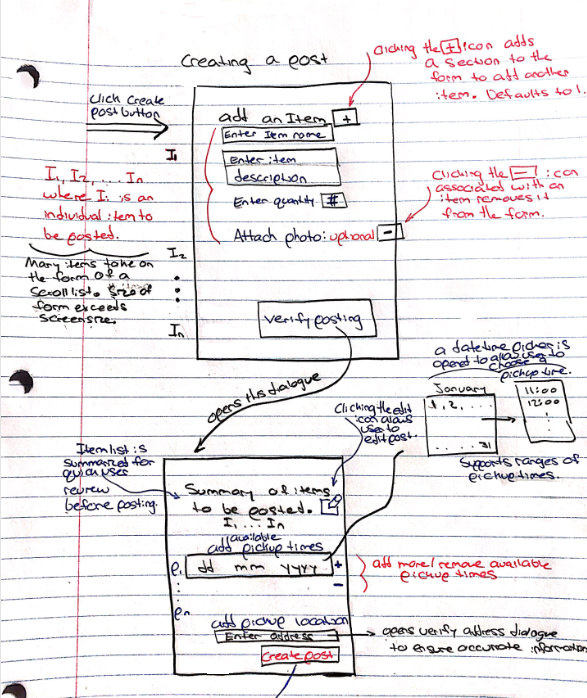 Creating a post
Clicking the [+] icon adds
a section to the
form to add another
item. Defaults to 1.
Click Create
post button
add an Item +
Enter Item name
I₁
Enter item
description
Enter quantity #
Attach photo: optional -
Clicking the [-] icon
associated with an
item removes it
from the form.
I₁, I₂, ... Iₙ
where Iᵢ is an
individual item to
be posted.
Many items take on
the form of a
scroll list. size of
form exceeds
screensize.
I₂
Iₙ
Verify posting
opens this dialogue
a datetime picker is
opened to allow user to
choose a
pickup time.
January
1, 2, ...
.... 31
11:00
12:00
Supports ranges of
pickup times.
Clicking the edit
icon allows
user to
edit post.
Item list is
summarized for
quick user
review
before posting.
Summary of items
to be posted.
I₁ ... Iₙ
available
add pickup times
P₁ dd mm yyyy +
-
Pₙ
add more/remove available
pickup times
add pickup location
Enter address
opens verify address dialogue
to ensure accurate information
Create post